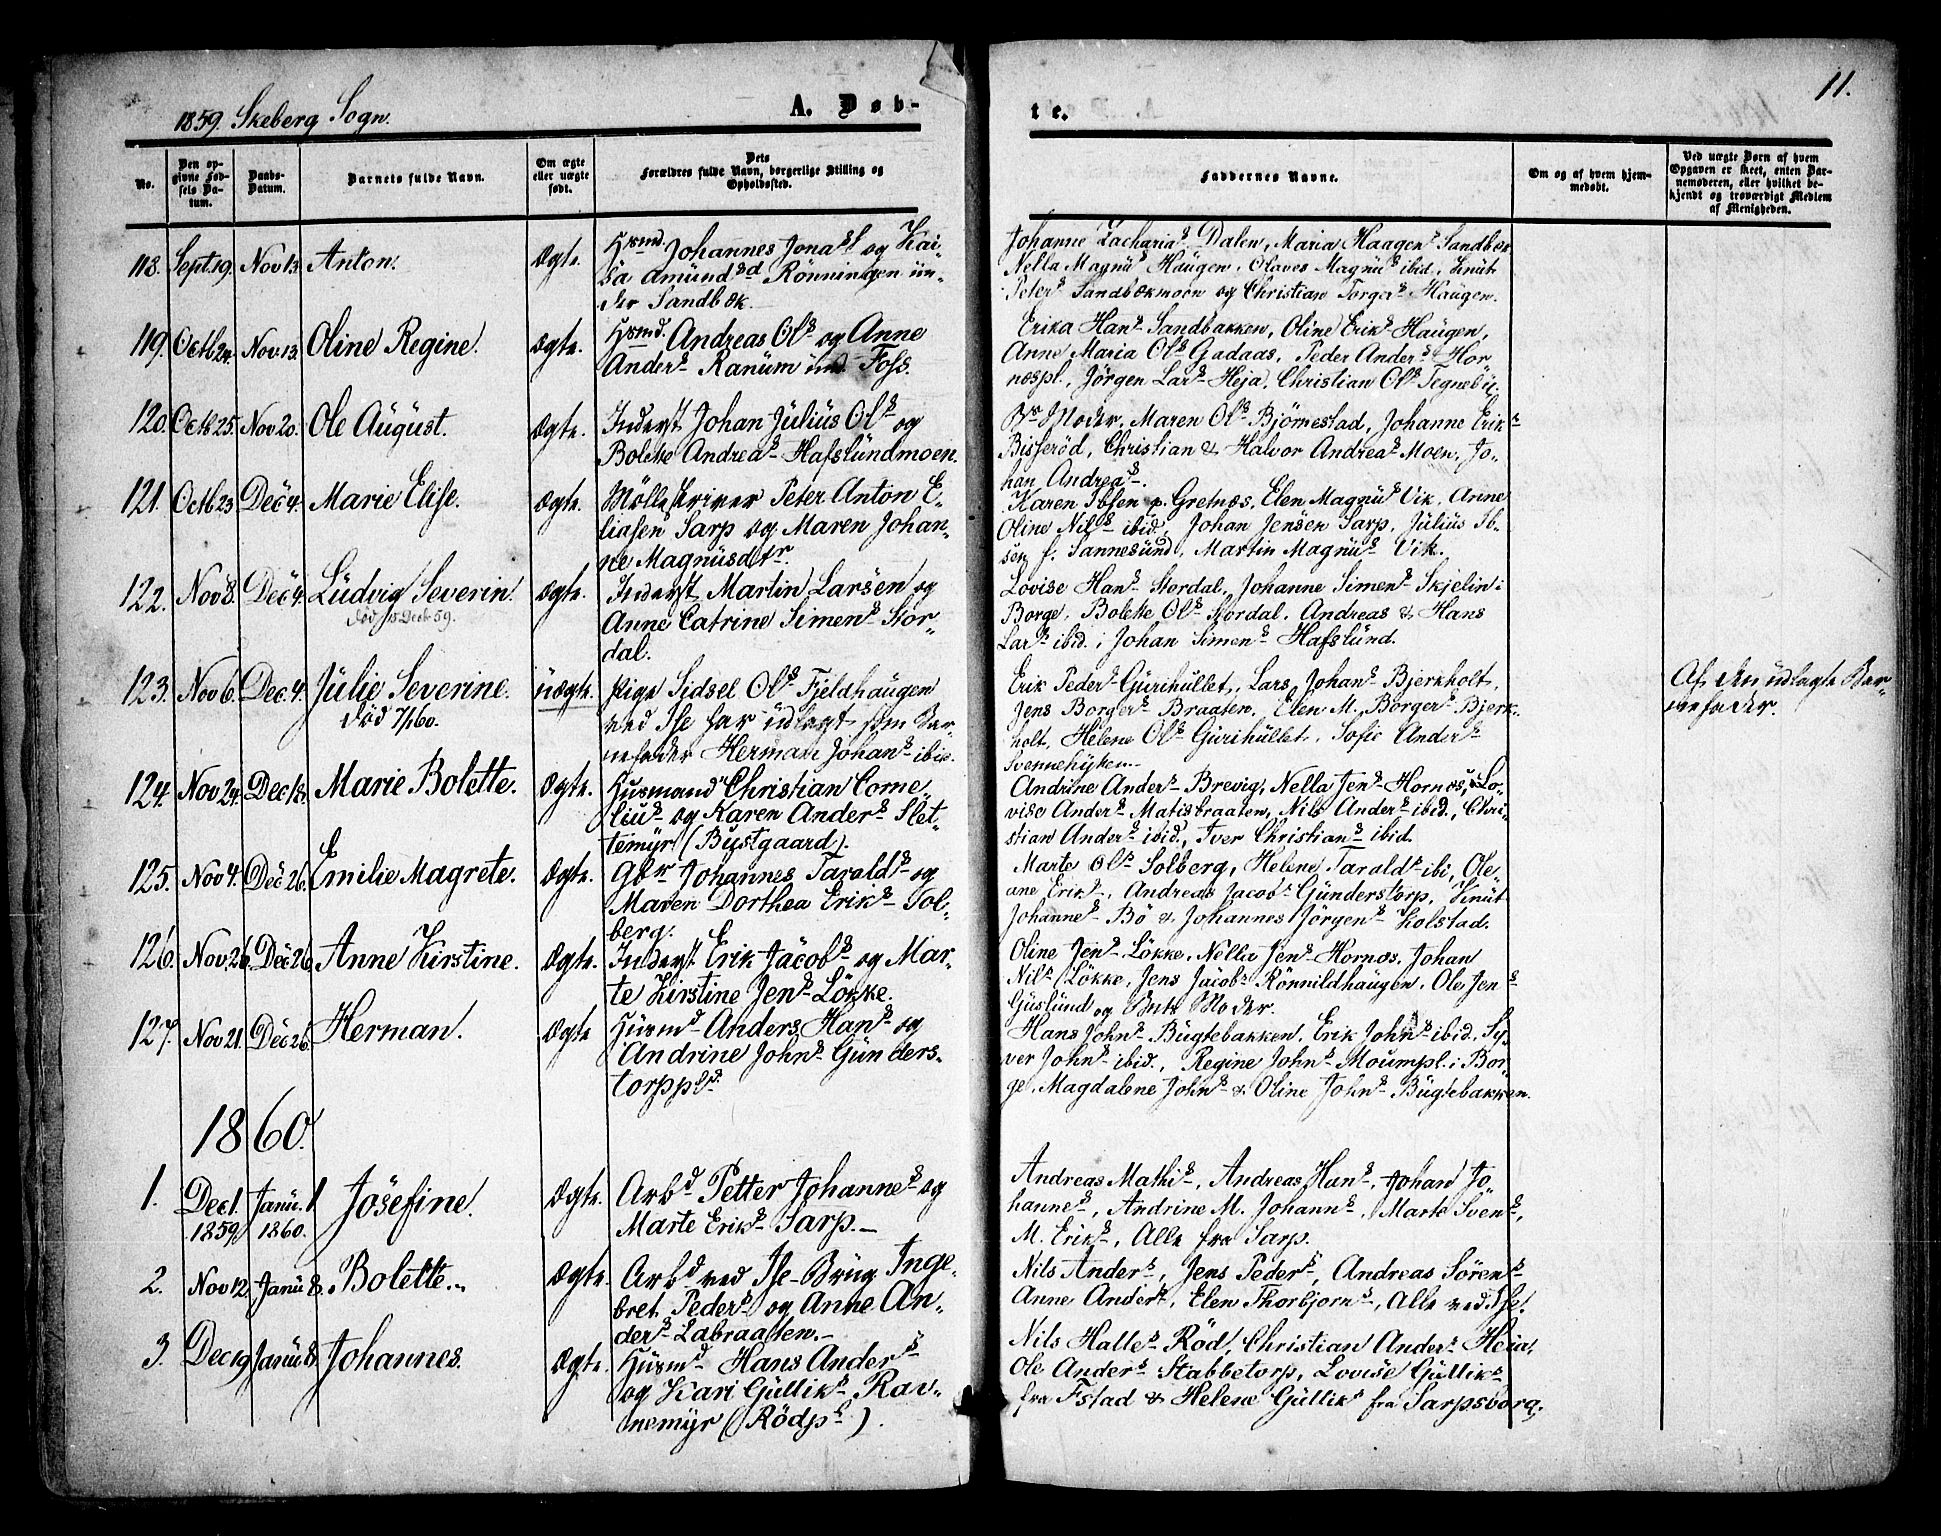 11.
1859. Skeberg Sogn. A. Døb- te.
No.
Den op-
givne Fød-
sels Da-
tum.
Daabs-
Datum.
Barnets fulde Navn.
Om ægte
eller uægte
født.
Dets
Forældres fulde Navn, borgerlige Stilling og
Opholdssted.
Faddernes Navne.
Om og af hvem hjem-
medøbt.
Ved uægte Børn af hvem
Opgaven er skeet, enten Bar-
nemoderen, eller hvilket be-
kjendt og troværdigt Medlem
af Menigheden.
118. Sept. 19. Nov 13. Anton. Ægte.
Husmd. Johannes Jonas og Kai-
sa Amundsd Rönningen ün-
der Sandbæk.
Johanne Zacharias Dalen, Maria Haagens Sandbæk
Nella Magnüs Haügen, Olaves Magnüs ibid., Knüt
Peters Sandbækmoen og Christian Torgers Haügen.
119. Octb 24. Nov. 13. Oline Regine. Ægte.
Husmd. Andreas Ols og Anne
Anders Ranüm und Foss.
Erika Hans Sandbakken, Oline Eriks Haügen,
Anne Maria Ols Gadaas, Peder Anders Hor
nespl., Jörgen Lars Heja, Christian Ols Tegnebü.
120. Octb 25. Nov 20. Ole Aügüst. Ægte.
Inderst Johan Jülius Ols og
Bolette Andreas Hafslündmoen.
Bns Moder, Maren Ols Björnestad, Johanne Eriks
Bisseröd, Christian & Halvor Andreas Moen, Jo-
han Andreas.
121. Octb 23 Dec 4. Marie Elise. Ægte.
Mölleskriver Peter Anton E-
liasen Sarp og Maren Johan-
ne Magnüsdtr.
Karen Ibsen p. Gretnæs, Elen Magnüs Vik, Anne
Oline Nils ibid., Johan Jensen Sarp, Jülius Ib-
sen f. Sannesünd, Martin Magnüs Vik.
122. Nov 8. Dec 4. Lüdvig Severin. Ægte.
död 15 Decb 59.
Inderst Martin Larsen og
Anne Catrine Simens Stor-
dal.
Lovise Hans Stordal, Johanne Simens Skjelin i
Borge, Bolette Ols Stordal, Andreas & Hans
Lars ibid. i Johan Simens Hafslünd.
123. Nov 6. Dec. 4. Jülie Severine. üægte.
död 7/1 60.
Pige Sidsel Ols Fjeldhaügen
ved Ise har üdlagt som Bar-
nefader Herman Johans ibid.
Erik Peders Gürihüllet, Lars Johans Bjerkholt,
Jens Borgers Braaten, Elen M. Borgers Bjerk-
holt, Helene Ols Gürihüllet, Sofie Anders
Svennehytten.
Af den üdlagte Bar-
nefader.
124. Nov 24. Dec 18. Marie Bolette. Ægte.
Husmand Christian Corne-
liüs og Karen Anders Slet-
temyr (Büstgaard).
Andrine Anders Brevig, Nella Jens Hornæs, Lo-
vise Anders Matisbraaten, Nils Anders ibid., Chri-
stian Anders ibid., Iver Christians ibid.
125. Nov 4. Dec 26. Emilie Magrete. Ægte.
Gbr Johannes Taralds og
Maren Dorthea Eriks Sol-
berg.
Marte Ols Solberg, Helene Taralds ibi, Ole-
ane Eriks, Andreas Jacobs Günderstorp, Knüt
Johannes Bö & Johannes Jörgens Kolstad.
126. Nov. 26. Dec 26. Anne Kirstine. Ægte.
Inderst Erik Jacobs og Mar-
te Kirstine Jens Lökke.
Oline Jens Lökke, Nella Jens Hornæs, Johan
Nils Lökke, Jens Jacobs Rönnildhaügen, Ole Jens
Güslünd og Bnts Moder.
127. Nov 21. Dec 26. Herman. Ægte
Hüsmd Anders Hans og
Andrine Johns Günders-
torppld.
Hans Johns Bügtebakken, Erik Johns ibid. Sy-
ver Johns ibid., Regine Johns Moumpl. i Bor-
ge, Magdalene Johns & Oline Johns Bügtebakken.
1860.
1. Dec 1. 1859 Janü. 1 1860. Josefine. Ægte.
Arbd Petter Johannes og
Marte Eriks Sarp.—
Andreas Mathis, Andreas Hans, Johan Jo
hannes, Andrine M. Johanns, Marte Svens,
M. Eriks, Alle fra Sarp.
2. Nov 12. Janü 8. Bolette. Ægte.
Arbd ved Ise-Brüg Inge-
bret Peders og Anne An-
ders Labraaten.—
Nils Anders, Jens Peders, Andreas Sörens
Anne Anders, Elen Thorbjorns, Alle ved Ise.
3. Dec 19 Janü 8. Johannes. Ægte.
Hüsmd Hans Anders
og Kari Gülliks Rav-
nemyr (Rödpl.).
Nils Halles Röd, Christian Anders Heia,
Ole Anders Stabbetorp, Lovise Gülliks
fra Istad & Helene Gülliks fra Sarpsborg.